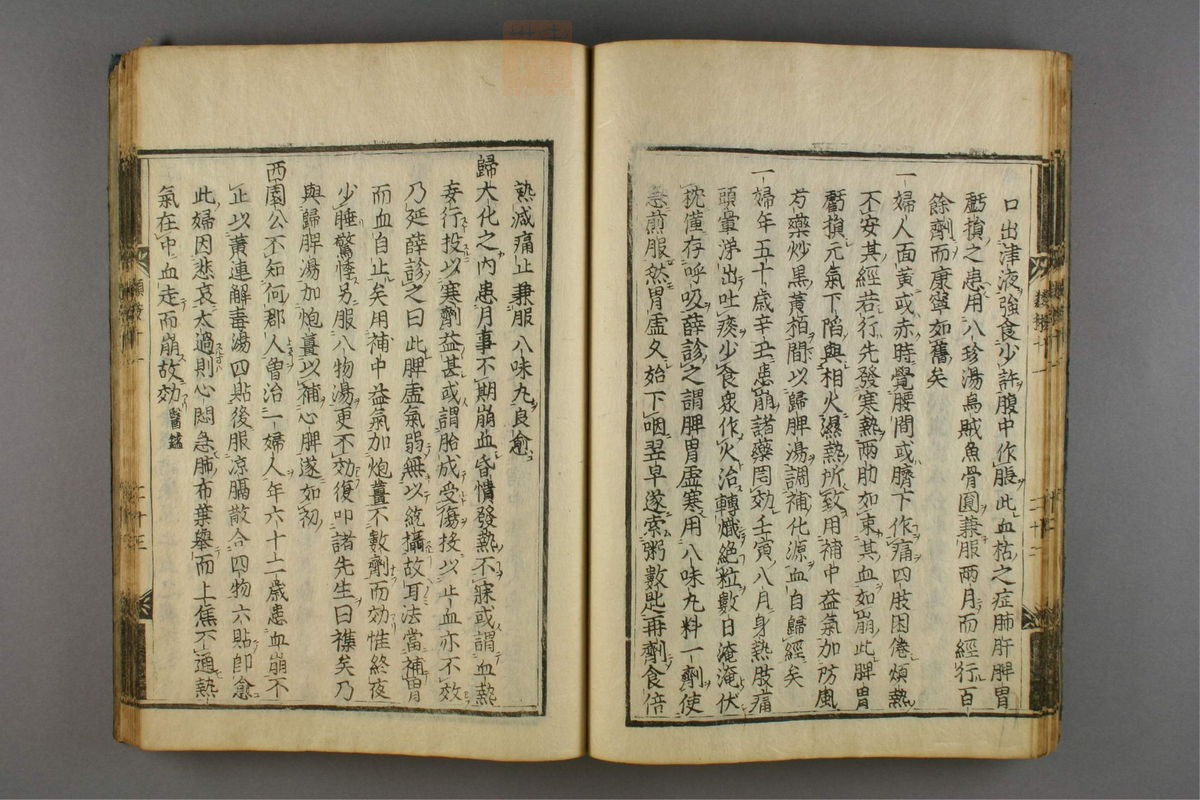 口出津液強食少許腹中作脹此血枯之症肺肝脾胃
虧損之患用八珍湯烏賊魚骨圓兼服兩月而經行百
餘劑而康寧如舊矣
一婦人面黃或赤時覺腰間或臍下作痛四肢困倦煩熱
不安其經若行先發寒熱兩肋如束其血如崩此脾胃
虧損元氣下陷與相火濕熱所致用補中益氣加防風
芍藥炒黑黃栢間以歸脾湯調補化源血自歸經矣
一婦年五十歲辛丑患崩諸藥罔効壬寅八月身熱肢痛
頭暈涕出吐痰少食衆作火治轉熾絕粒數日淹淹伏
枕僅存呼吸薛診之謂脾胃虛寒用八味丸料一劑使
急煎服然胃虛久始下咽翌早遂索粥數匙再劑食倍
熱減痛止兼服八味丸良愈
歸大化之內患月事不期崩血昏憒發熱不寐或謂血熱
妄行投以寒劑益甚或謂胎成受傷投以止血亦不效
乃延薛診之曰此脾虛氣弱無以統攝故耳法當補胃
而血自止矣用補中益氣加炮薑不數劑而効惟終夜
少睡驚悸另服八物湯更不効復叩諸先生曰襍矣乃
與歸脾湯加炮薑以補心脾遂如初
西園公不知何郡人曾治一婦人年六十二歲患血崩不
止以黃連解毒湯四貼後服凉膈散合四物六貼即愈
此婦因悲哀太過則心悶急肺布葉舉而上焦不通熱
氣在中血走而崩故効 醫鑑